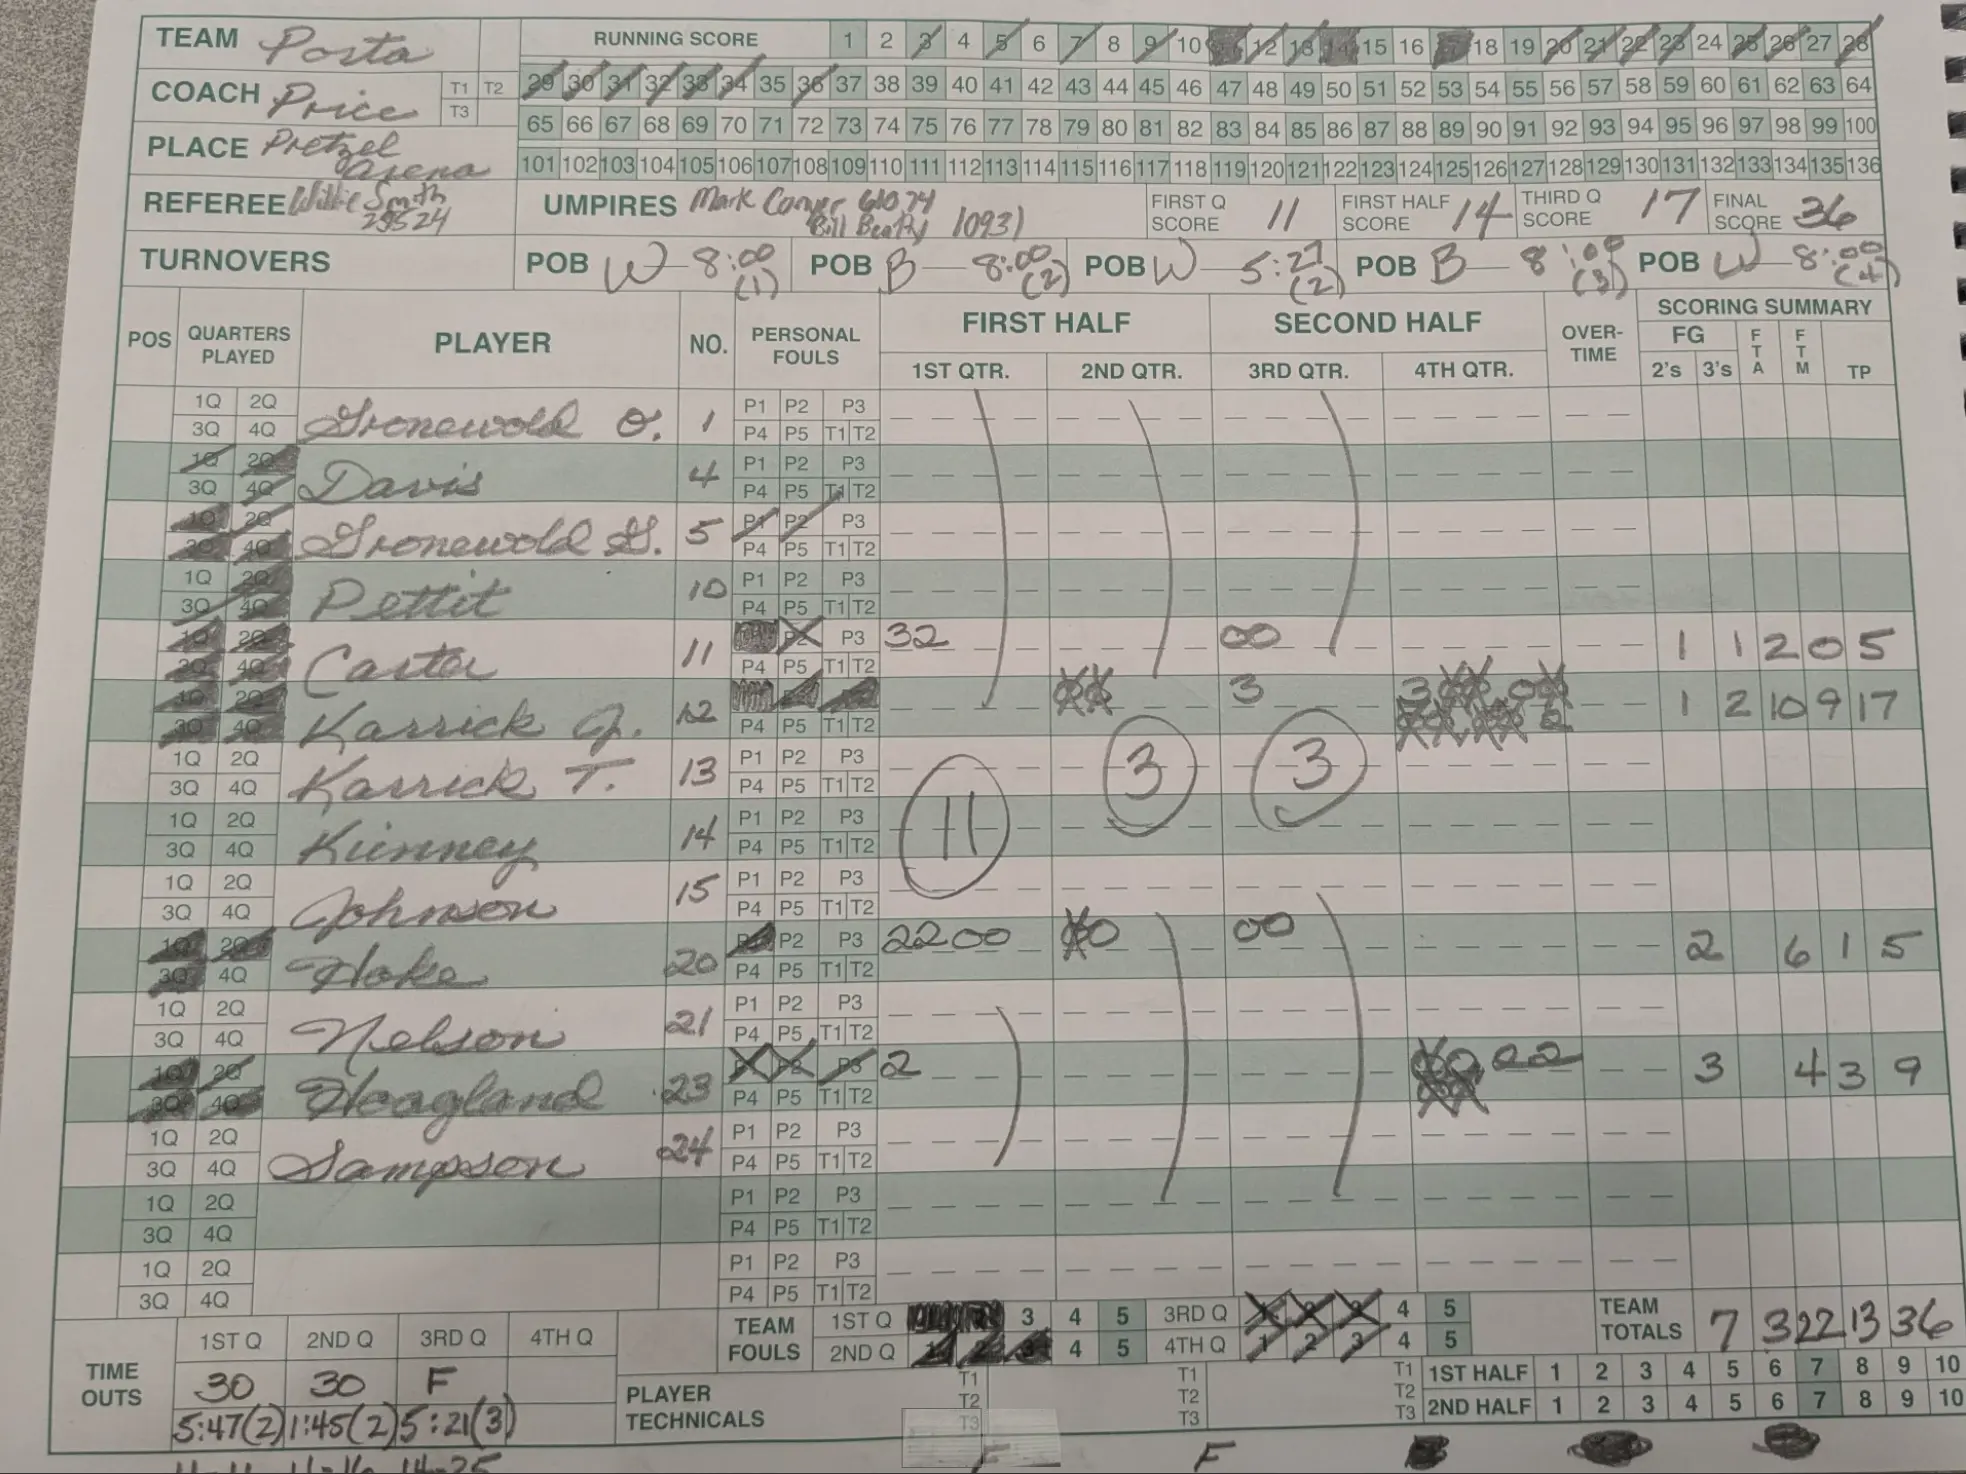 TEAM Porta
RUNNING SCORE 1 2 3 4 5 6 7 8 9 10 12 13 15 16 18 19 20 21 22 23 24 25 26 27 28
COACH Price T1 T2 T3
29 30 31 32 33 34 35 36 37 38 39 40 41 42 43 44 45 46 47 48 49 50 51 52 53 54 55 56 57 58 59 60 61 62 63 64
PLACE Pretzel Arena
65 66 67 68 69 70 71 72 73 74 75 76 77 78 79 80 81 82 83 84 85 86 87 88 89 90 91 92 93 94 95 96 97 98 99 100
101 102 103 104 105 106 107 108 109 110 111 112 113 114 115 116 117 118 119 120 121 122 123 124 125 126 127 128 129 130 131 132 133 134 135 136
REFEREE Willie Smith 29524
UMPIRES Mark 61074 Bill Beatty 10931
FIRST Q SCORE 11 FIRST HALF SCORE 14 THIRD Q SCORE 17 FINAL SCORE 36
TURNOVERS POB W 8:00 (1) POB B 8:00 (2) POB W 5:27 (2) POB B 8:00 (3) POB W 8:00 (4)
POS QUARTERS PLAYED PLAYER NO. PERSONAL FOULS FIRST HALF SECOND HALF OVER-TIME SCORING SUMMARY
1ST QTR. 2ND QTR. 3RD QTR. 4TH QTR. FG 2's 3's FTA FTM TP
1Q 2Q Gronewold O. 1 P1 P2 P3
3Q 4Q P4 P5 T1 T2
1Q 2Q Davis 4 P1 P2 P3
3Q 4Q P4 P5 T1 T2
1Q 2Q Gronewold G. 5 P1 P2 P3
3Q 4Q P4 P5 T1 T2
1Q 2Q Pettit 10 P1 P2 P3
3Q 4Q P4 P5 T1 T2
1Q 2Q Carter 11 P2 P3 32 00 1 1 2 0 5
3Q 4Q P4 P5 T1 T2
1Q 2Q Karrick J. 12 3 3 1 2 10 9 17
3Q 4Q P4 P5 T1 T2
1Q 2Q Karrick T. 13 P1 P2 P3 3 3
3Q 4Q P4 P5 T1 T2
1Q 2Q Kinney 14 P1 P2 P3 11
3Q 4Q P4 P5 T1 T2
1Q 2Q Johnson 15 P1 P2 P3
3Q 4Q P4 P5 T1 T2
1Q 2Q Hoke 20 P2 P3 2200 00 2 6 1 5
3Q 4Q P4 P5 T1 T2
1Q 2Q Nelson 21 P1 P2 P3
3Q 4Q P4 P5 T1 T2
1Q 2Q Hoagland 23 P2 P3 2 22 3 4 3 9
3Q 4Q P4 P5 T1 T2
1Q 2Q Sampson 24 P1 P2 P3
3Q 4Q P4 P5 T1 T2
1Q 2Q P1 P2 P3
3Q 4Q P4 P5 T1 T2
1Q 2Q P1 P2 P3
3Q 4Q P4 P5 T1 T2
TIME OUTS 1ST Q 2ND Q 3RD Q 4TH Q
30 30 F
5:47(2) 1:45(2) 5:21(3)
TEAM FOULS 1ST Q 3 4 5 3RD Q 1 2 3 4 5
2ND Q 1 2 3 4 5 4TH Q 1 2 3 4 5
TEAM TOTALS 7 3 22 13 36
PLAYER TECHNICALS T1 T2 T3 T1 T2 T3 T1 T2 T3
1ST HALF 1 2 3 4 5 6 7 8 9 10
2ND HALF 1 2 3 4 5 6 7 8 9 10
F F
14-25